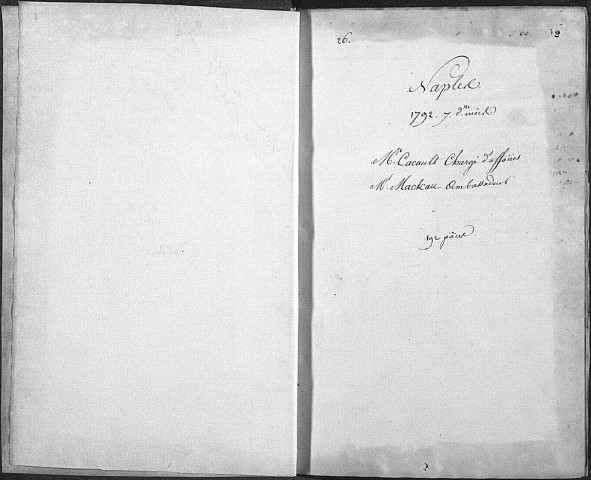 26. 2
Naples
1792. 7. d.ers mois
Mr. Cacault Chargé d'affaires
Mr. Mackau Ambassadeur
192 pièces